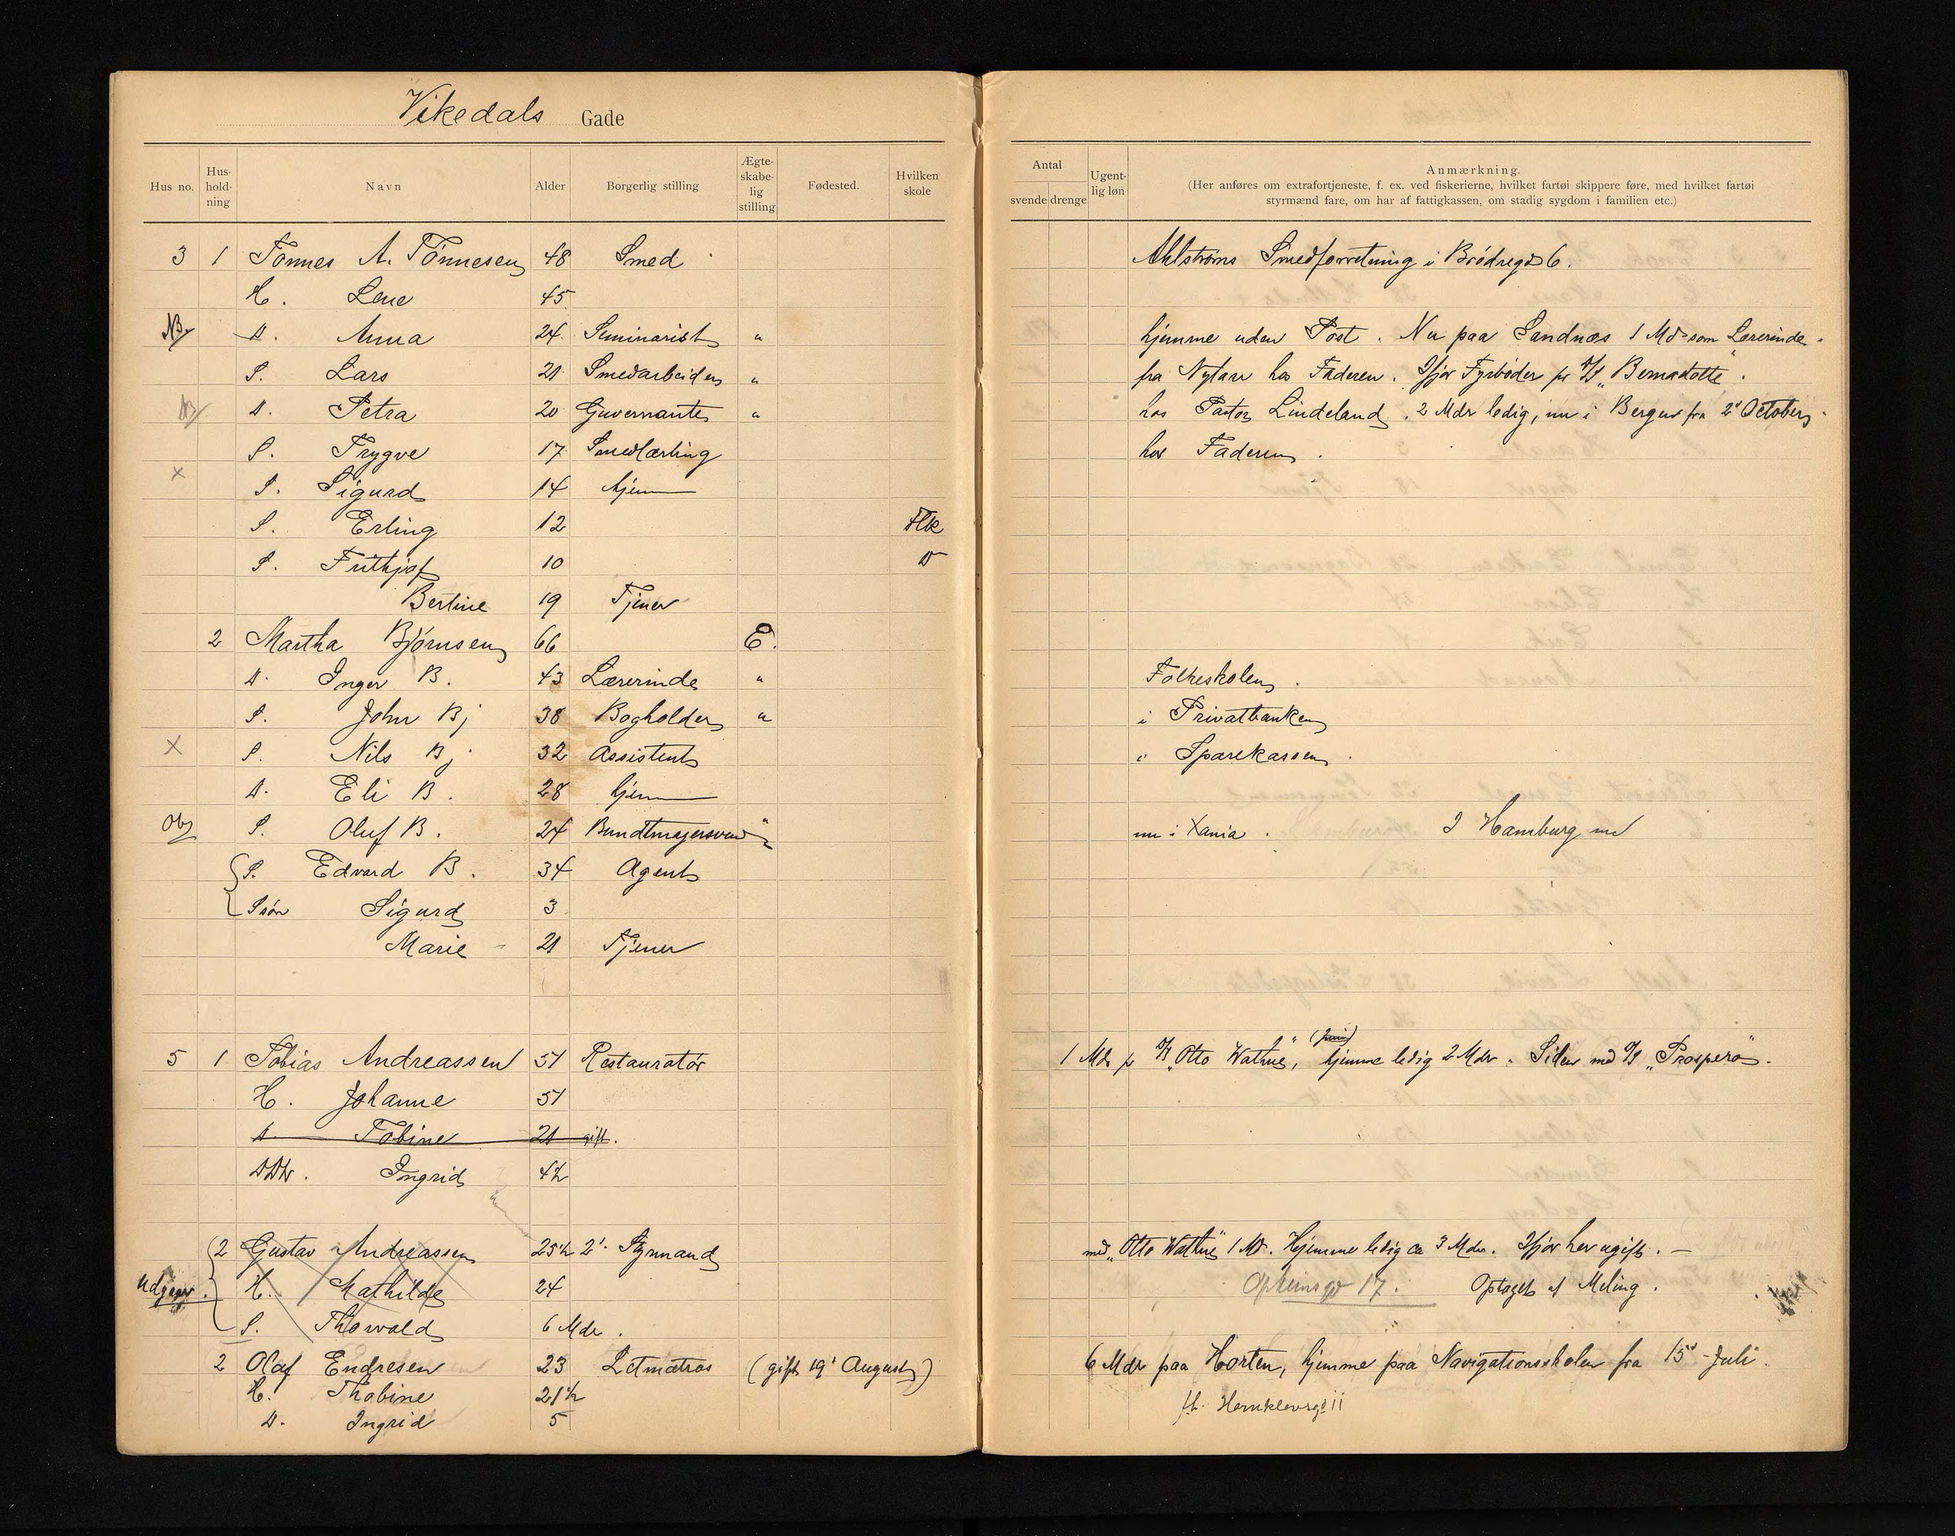 Vikedals Gade
Hus no. Hus-hold-ning Navn Alder Borgerlig stilling Ægte-skabe-lig stilling Fødested. Hvilken skole
Antal svende drenge Ugent-lig løn Anmærkning.
(Her anføres om extrafortjeneste, f. ex. ved fiskerierne, hvilket fartøi skippere føre, med hvilket fartøi
styrmænd fare, om har af fattigkassen, om stadig sygdom i familien etc.)
3 1 Tønnes A. Tønnesen 48 Smed Ahlstrøms Smedforretning i Brødregd 6.
H. Lene 45
NB D. Anna 24 Seminarist " hjemme uden Post. Nu paa Sandnæs 1 Md som Lærerinde.
S. Lars 21 Smedarbeider " fra Nytaar hos Faderen. Ifjor Fyrbøder pr D/S "Bernadotte".
NB D. Petra 20 Guvernante " hos Pastor Lindeland. 2 Mdr ledig, nu i Bergen fra 2' October.
S. Trygve 17 Smedlærling hos Faderen.
x S. Sigurd 14 hjem
S. Erling 12 Flk
S. Frithjof 10 D
Bertine 19 Tjener
2 Martha Bjørnsen 66 E.
D. Inger B. 43 Lærerinde " Folkeskolen.
S. John Bj 38 Bogholder " i Privatbanken
X S. Nils Bj 32 Assistent i Sparekassen.
D. Eli B. 28 hjem
Obs S. Oluf B. 24 Bundtmagersvend " nu i Xania. I Hamburg nu
S. Edvard B. 34 Agent
Ssøn Sigurd 3
Marie 21 Tjener
5 1 Tobias Andreassen 51 Restauratør 1 Mdr p D/S "Otto Wathne", (Juni) hjemme ledig 2 Mdr. Siden med D/S "Prospero".
H. Johanne 51
D. Tobine 21 gift.
DDtr. Ingrid 4½
2 Gustav Andreassen 25½ 2' Styrmand med "Otto Wathne" 1 Md. Hjemme ledig ca 3 Mdr. Ifjor her ugift. —
Udgaar. H. Mathilde 24 Opheimsgd 17. Optaget af Meling.
S. Thorvald 6 Mdr.
2 Olaf Endresen 23 Letmatros (gift 19' August) 6 Mdr paa Horten, hjemme paa Navigationsskolen fra 15' Juli.
H. Thobine 21½ fh. Hernklevsgd 11
D. Ingrid 5